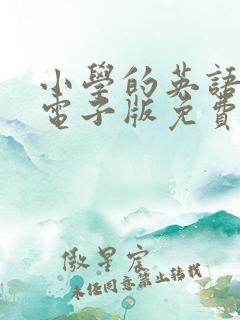 小學的英語
電子版免費
傲星宸
未經同意禁止轉載